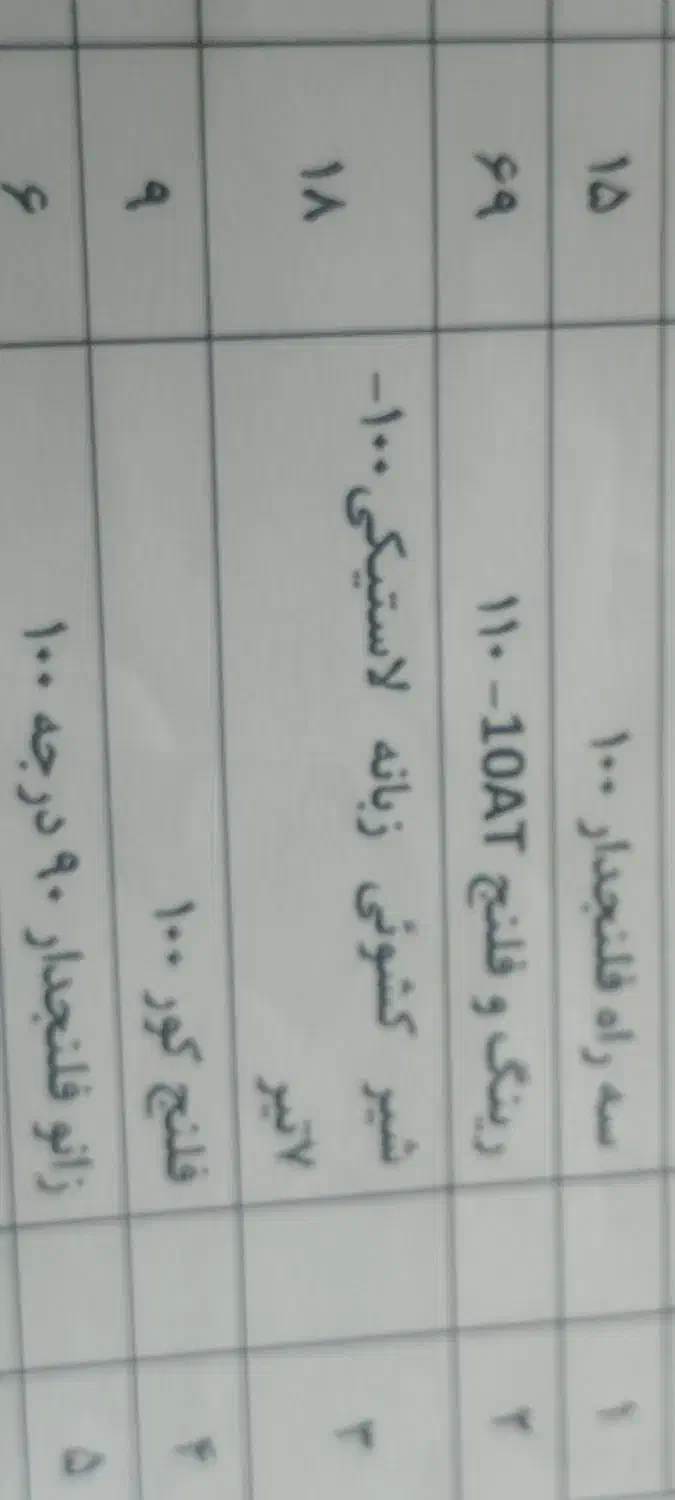 ۱ سه راه فلنجدار ۱۰۰ ۱۵
۲ رینگ و فلنج 10AT– ۱۱۰ ۶۹
۳ شیر کشوئی زبانه لاستیکی ۱۰۰– ۱۸
۷تیر
۴ فلنج کور ۱۰۰ ۹
۵ زانو فلنجدار ۹۰ درجه ۱۰۰ ۶